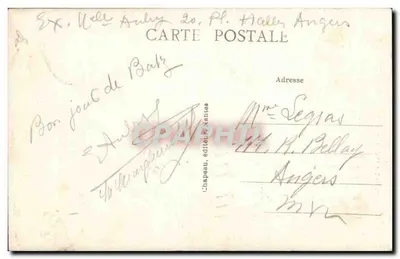 Ex. Melle Aubry 20, Pl. Halles Angers
CARTE POSTALE
Bon jour de Batz
Adresse
Aubry
Chapeau, éditeur, Nantes
CPAPHIL
Mme Legras
R. Bellay
Angers